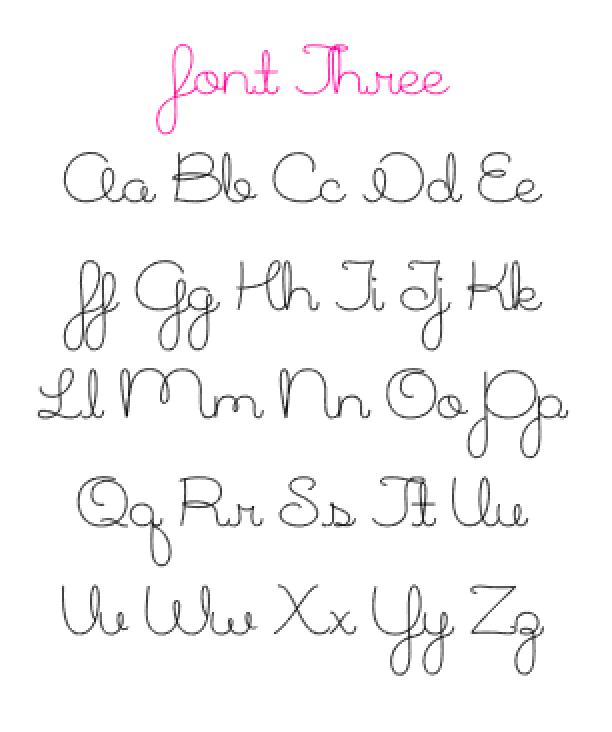 font Three
Aa Bb Cc Dd Ee
ff Gg Hh Ii Jj Kk
Ll Mm Nn Oo Pp
Qq Rr Ss Tt Uu
Vv Ww Xx Yy Zz